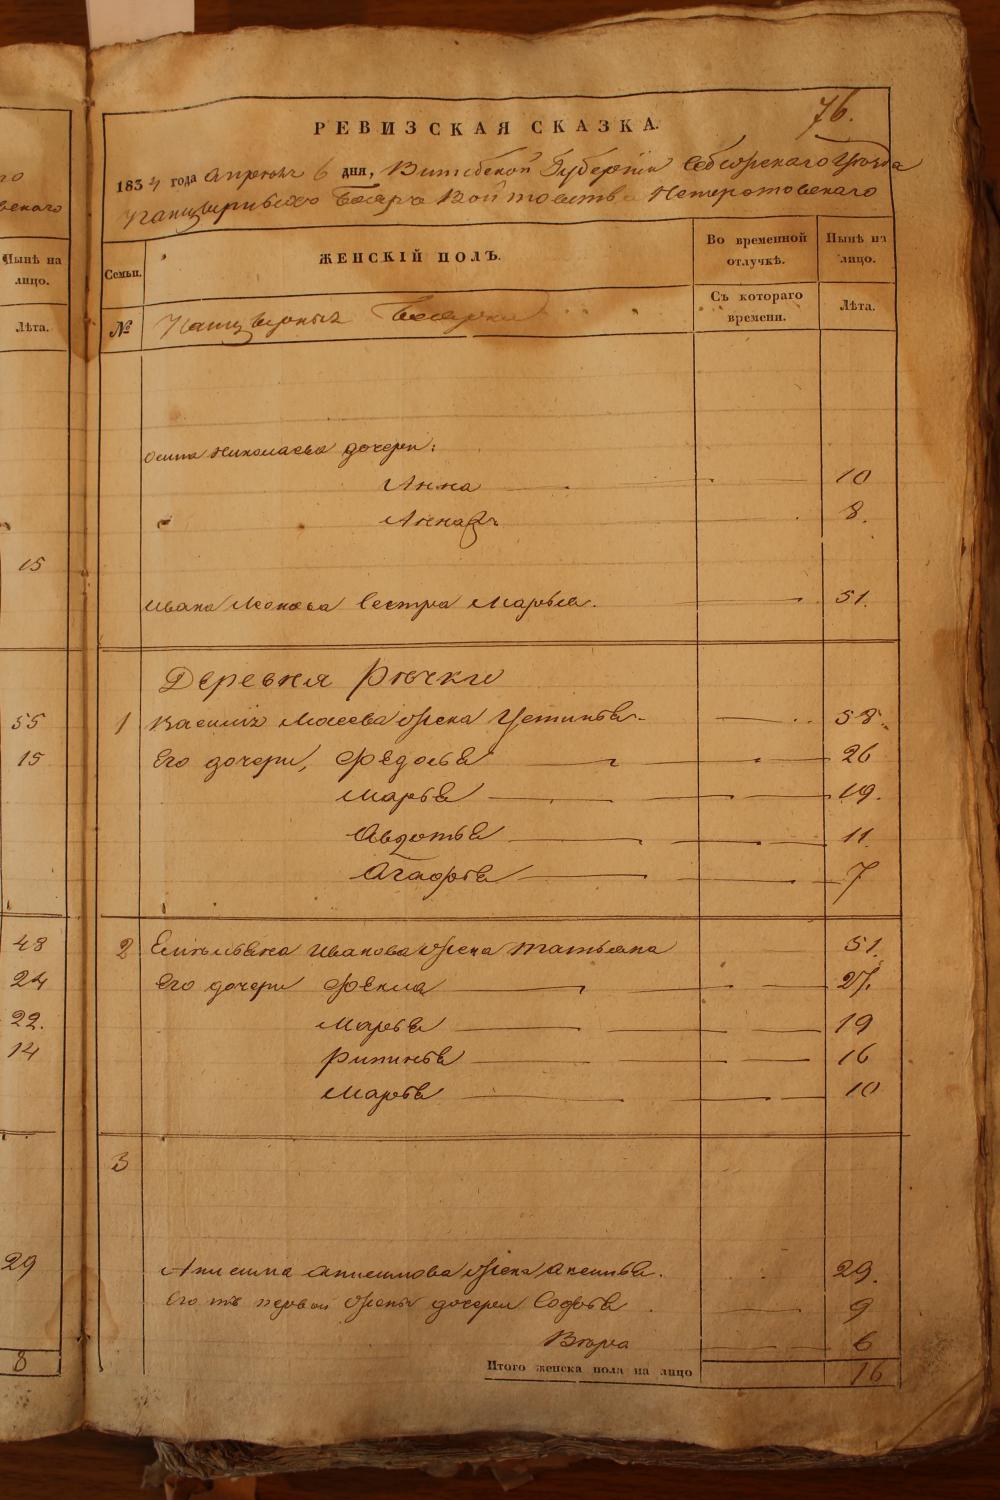 76.
РЕВИЗСКАЯ СКАЗКА.
1834 года Апреля 6 дня, Витебской Губернии Себежскаго Уезда
Панцырныхъ Бояръ Войтовства Нетеротовскаго
Семьи.
ЖЕНСКІЙ ПОЛЪ.
Во временной отлучкѣ.
Нынѣ на лицо.
№
Панцырныхъ Бояръ
Съ котораго времени.
Лѣта.
Осипа Николаева дочери:
Анна 10
Анна 2я 8.
Ивана сестра Марья. 51.
Деревня Рѣчки
1 Василія Моисева жена Устинья. 58.
Его дочери, Федосья 26
Марья 19.
Авдотья 11.
Агафья 7
2 Емельяна Иванова жена Татьяна 51.
Его дочери Фекла 27.
Марья 19
16
Марья 10
3
Анисима Анисимова жена Аксинья. 29.
Его отъ первой жены дочери Софья 9
Вѣра 6
Итого женска пола на лицо 16
го
вскаго
Нынѣ на лицо.
Лѣта.
15
55
15
48
24
22.
14
29
8